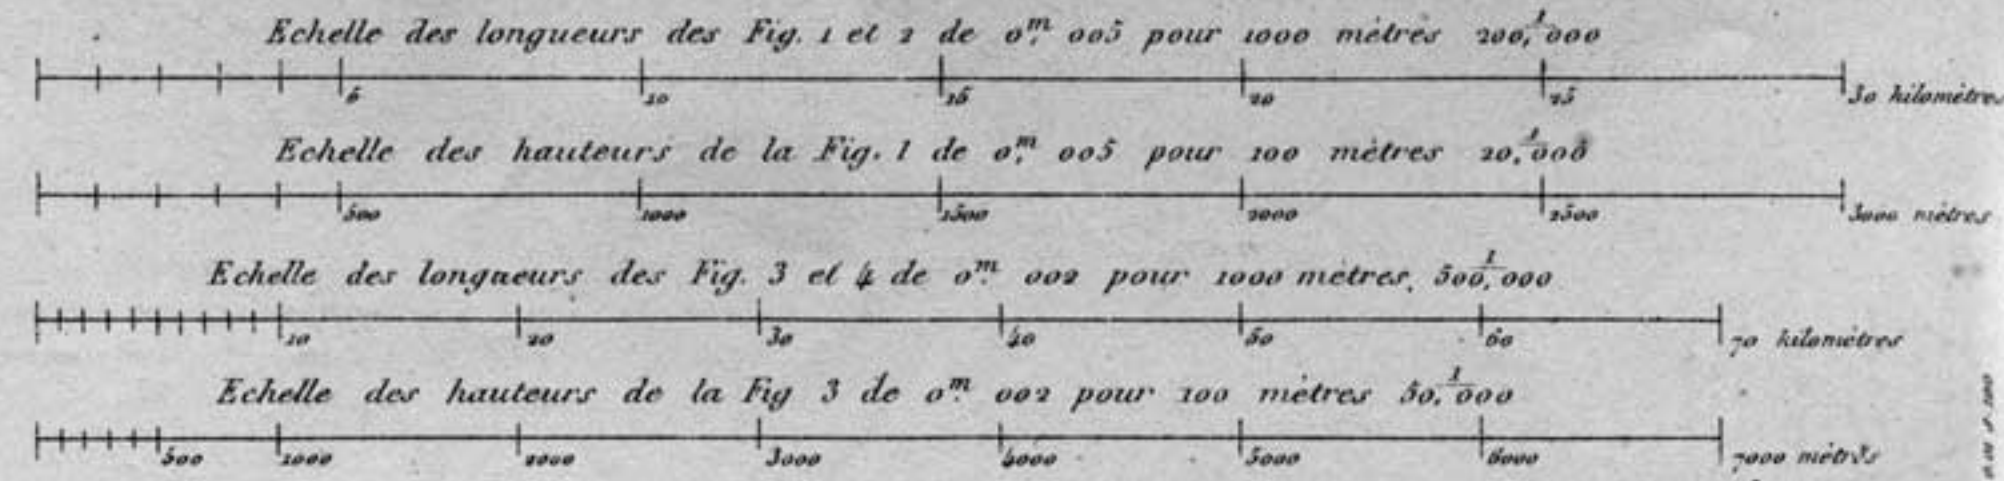 Echelle des longueurs des Fig. 1 et 2 de 0,m 005 pour 1000 mètres 1/200,000
5 10 15 20 25 30 kilomètres
Echelle des hauteurs de la Fig. 1 de 0,m 005 pour 100 mètres 1/20,000
500 1000 1500 2000 2500 3000 mètres
Echelle des longueurs des Fig. 3 et 4 de 0,m 002 pour 1000 mètres, 1/500,000
10 20 30 40 50 60 70 kilomètres
Echelle des hauteurs de la Fig 3 de 0,m 002 pour 100 mètres 1/50,000
500 1000 2000 3000 4000 5000 6000 7000 mètres